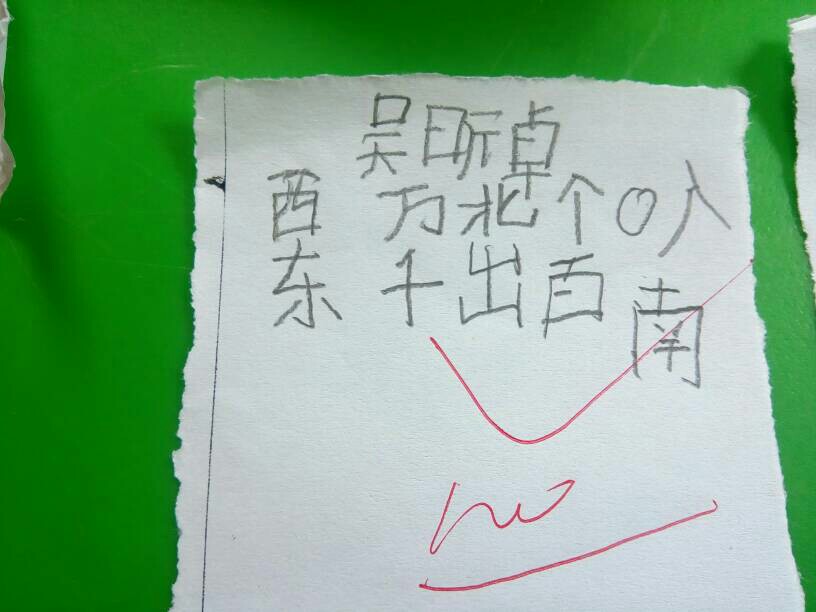 吴昕卓
西 万北个〇入
东 千出百南
100